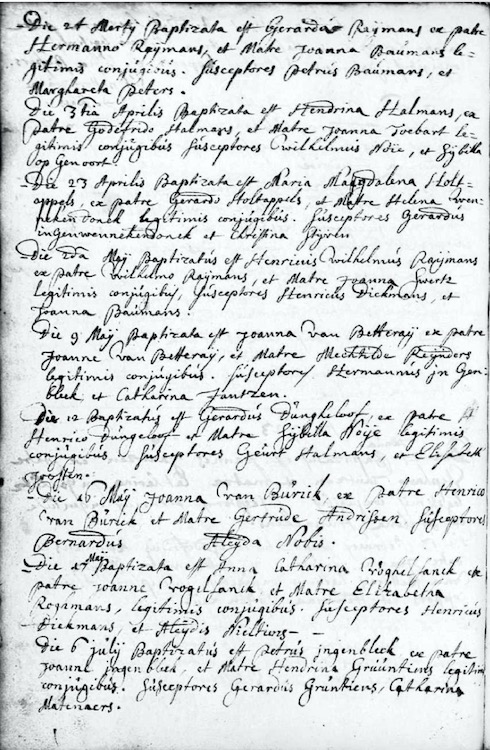 Die 24 Mertÿ Baptizata est Gerardus Raÿmans ex patre
Hermanno Raÿmans, et Matre Joanna Baumans le-
gitimis conjugibus. Susceptores Petrus Baumans, et
Marghareta Peters.
Die 3tia Aprilis Baptizata est Hendrina Halmans, ex
patre Godefrido Halmans, et Matre Joanna Toebart le-
gitimis conjugibus Susceptores wilhelmus Ndie, et Sÿbilla
op Genoort
Die 23 Aprilis Baptizata est Maria Magdalena Holt-
appels, ex patre Gerardo Holtappels, et Matre Helena wen-
nekendonck legitimis conjugibus. Susceptores Gerardus
inGenwennekendonck et Christina
Die 2da Maÿ Baptizatus est Henricus wilhelmus Raÿmans
ex patre wilhelmo Raÿmans, et Matre Joanna Swertz
legitimis conjugibus, Susceptores Henricus Dickmans, et
Joanna Baumans.
Die 9 Maÿ Baptizata est Joanna van Betteraÿ ex patre
Joanne van Betteraÿ, et Matre Mechtilde Reÿnders
legitimis conjugibus. Susceptores Hermannus jn Gen-
bleck et Catharina Jantzen.
Die 12 Baptizatus est Gerardus Düngheloof, ex patre
Henrico Düngeloof et Matre Sÿbilla Noÿe legitimis
conjugibus Susceptores Geurt Halmans, et Elisabeth
Joosten.
Die 16 Maÿ Joanna van Bürick, ex patre Henrico
van Bürick et Matre Gertrude Andrissen. Susceptores
Bernardus Aleyda Nobis.
Die 27 Maÿ Baptizata est Anna Catharina voghelsanck ex
patre Joanne vogelsanck et Matre Elizabetha
Roÿmans, legitimis conjugibus. Susceptores Henricus
Dickmans, et Aleydis
Die 6 julÿ Baptizatus est petrus jngenbleck ex patre
Joanne jngenbleck, et Matre Hendrina Grüüntiens legitimis
conjugibus. Susceptores Gerardus Grüntiens, Catharina
Matenaers.